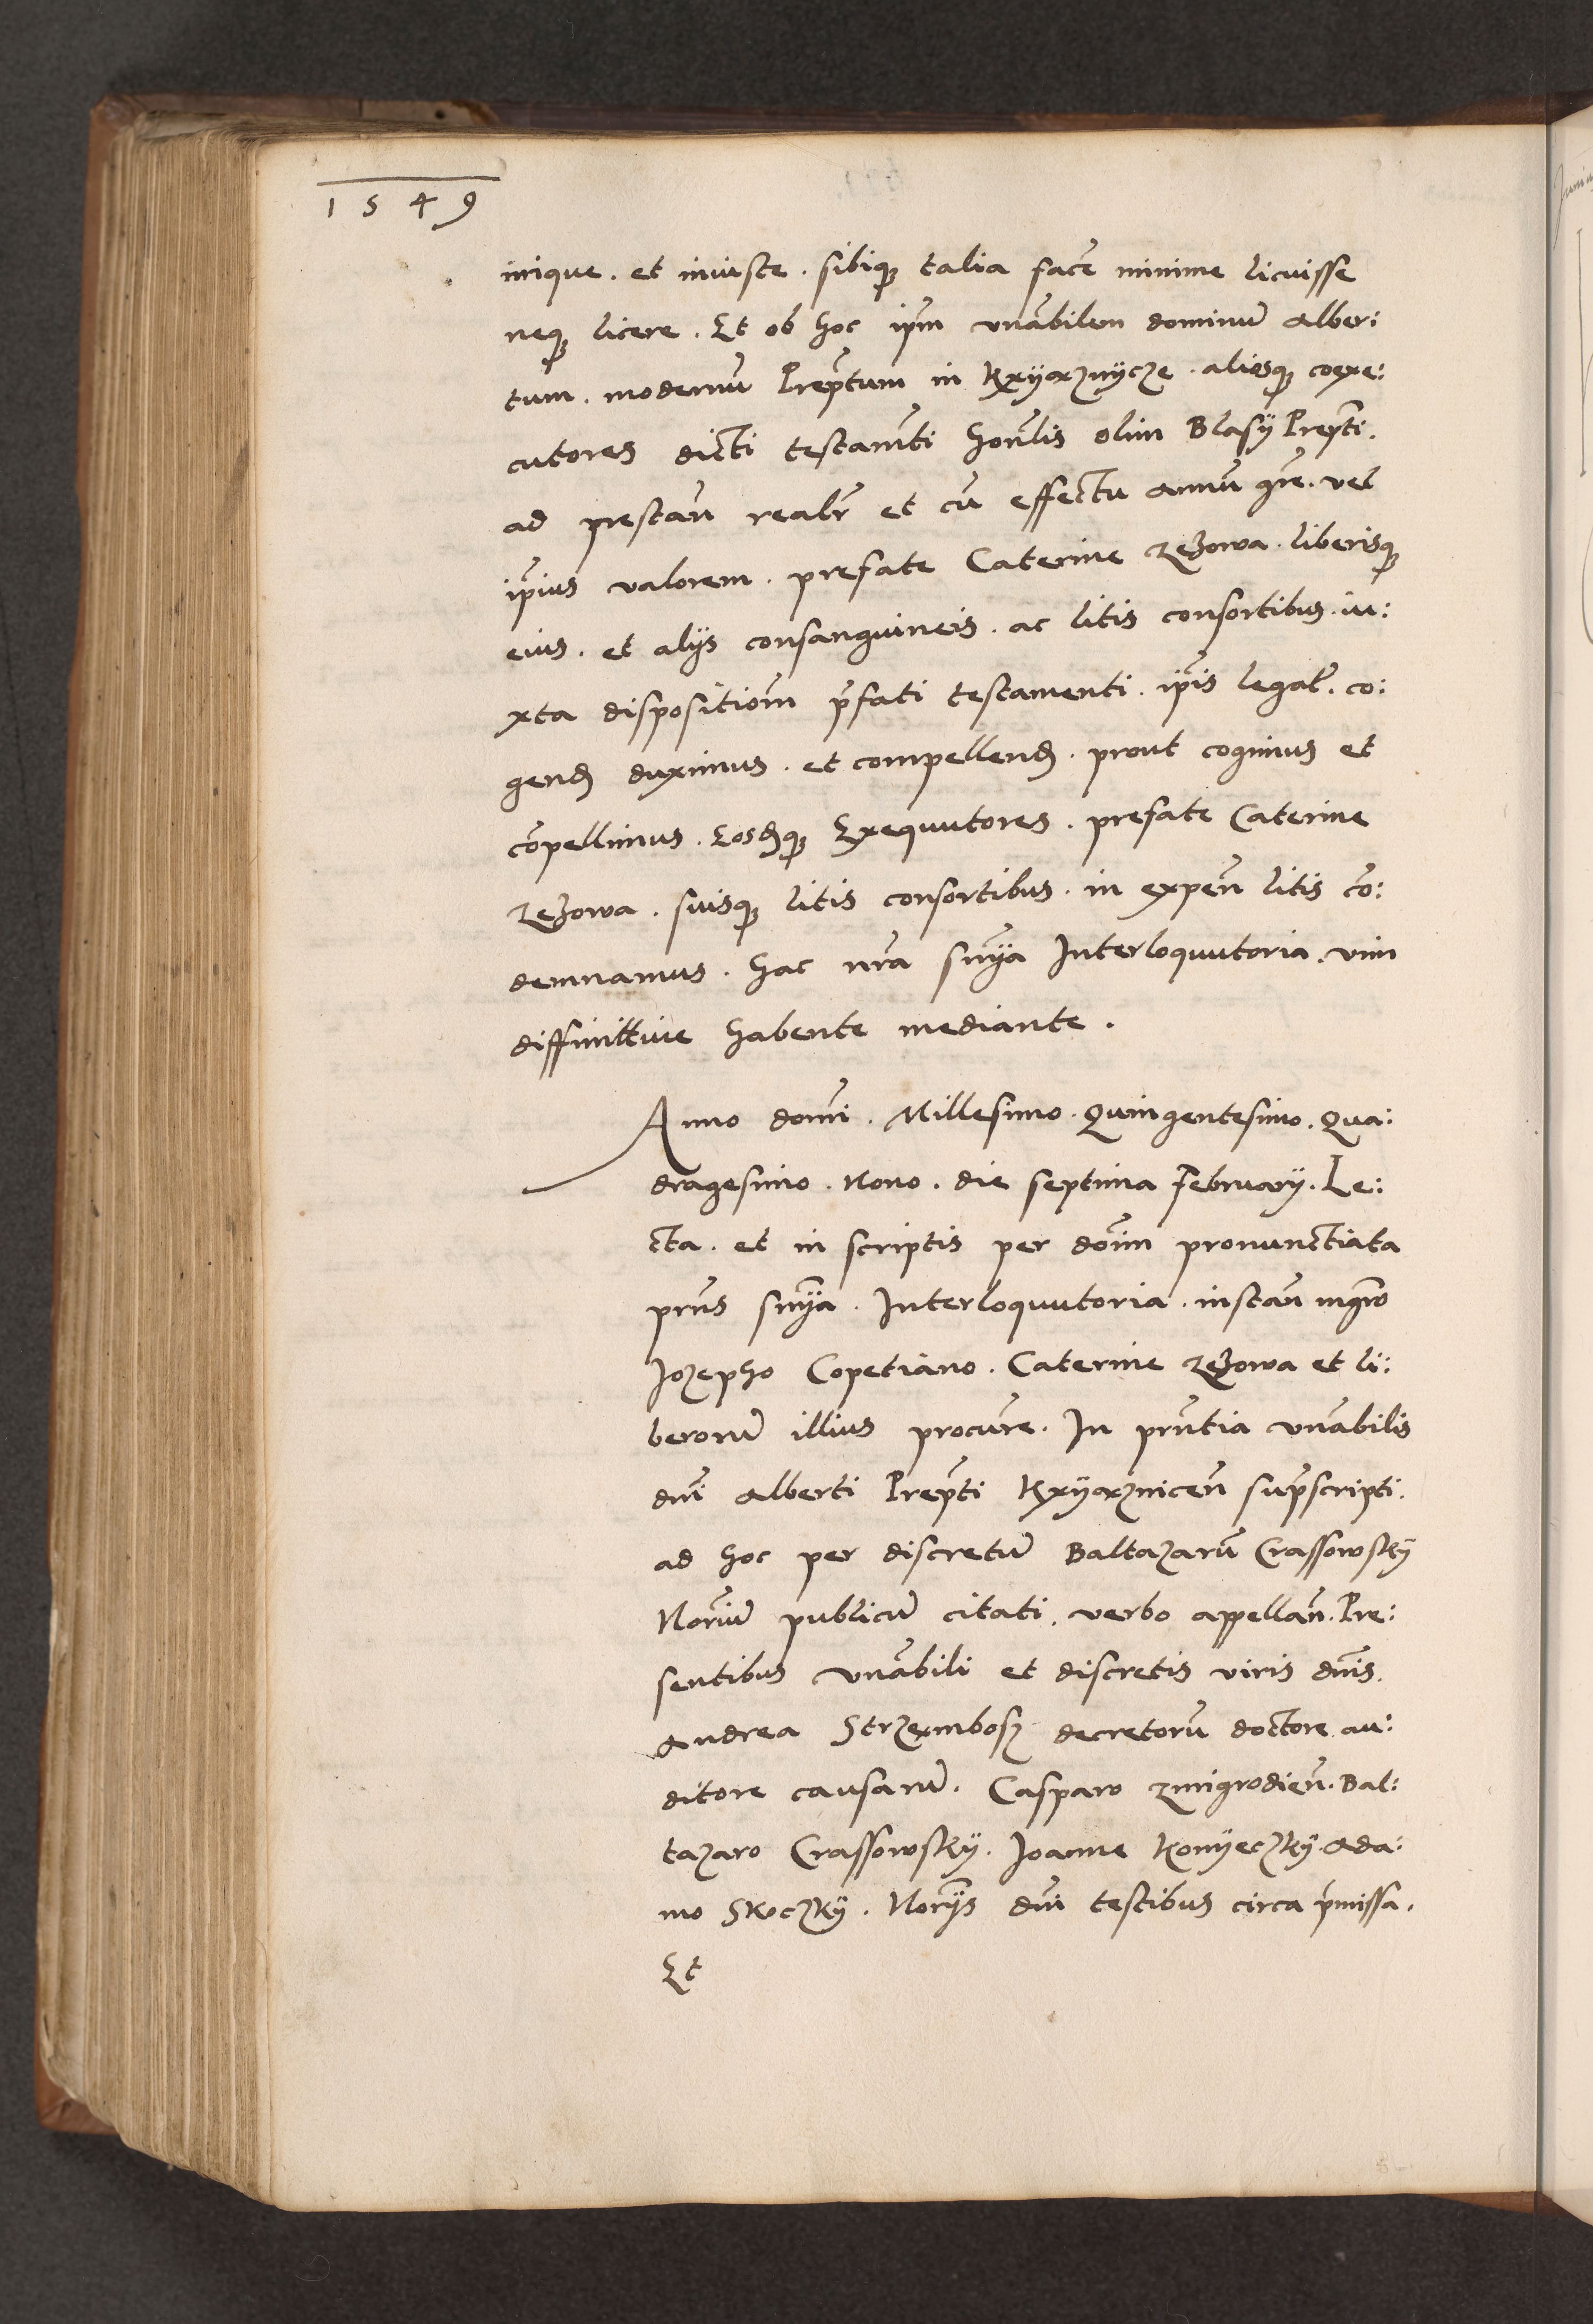 1549
inique. et iniuste. sibiq; talia facē minime licuisse
neq; licere. Et ob hoc ip̄m vnābilem dominū Alber:
tum. modernū Prep̄tum in Kxyąznycze. aliosq; coexe:
cutores dicti testam̄ti hon̄lis olim Blasÿ Prep̄ti.
ad prestan̄ realr̄ et cū effectu annū gn̄e. vel
ip̄ius valorem. prefate Caterine zezowa. liberisq;
eius. et alÿs consanguineis. ac litis consortibus. iu:
xta dispositiom̄ p̄fati testamenti. ip̄is legat̄. co:
gend̄ duximus. et compellend̄. prout cogimus et
cōpellimus. Eosdq; Exequutores. prefate Caterine
zezowa. suisq; litis consortibus. in expen̄ litis cō:
demnamus. hac nr̄a sn̄ÿa Interloquutoria. vim
diffinittiue habente mediante.
Anno domī. Millesimo. Quingentesimo. Qua:
dragesimo. Nono. die septima februarÿ. Le:
cta. et in scriptis per doīm pronunctiata
prn̄s sn̄ÿa. Interloquutoria. instan̄ mgr̄o
Jozepho Copetiano. Caterine zezowa et li:
berorū illius procūre. In prn̄tia vnābilis
dn̄i Alberti Prep̄ti Kxyąznicen̄ sup̄scripti.
ad hoc per discretū Baltazarū Crassowskÿ
Nor̄iū publicū citati. verbo appellan̄. Pre:
sentibus vnābili et discretis viris dn̄is.
Andrea Strzembosz decretorū doctore. au:
ditore causarū. Casparo zmigrodien̄. Bal:
tazaro Crassowskÿ. Joanne Konyeczkÿ. Ada:
mo Skoczkÿ. Nor̄ÿs dn̄i testibus circa p̄missa.
Et